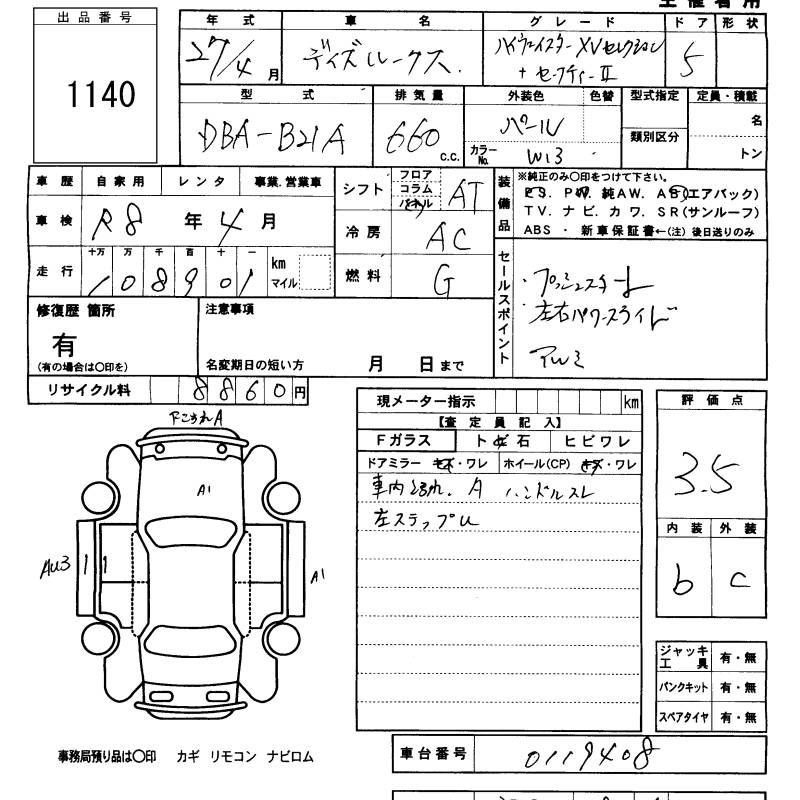 出品番号
1140
年式 車名 グレード ドア 形状
27/4月 ディズルークス. ハイウェイスターXVセレクション
+セーフティーII 5
型式 排気量 外装色 色替 型式指定 定員・積載
DBA-B21A 660 c.c. パール 名
カラーNo. W13 類別区分 トン
車歴 自家用 レンタ 事業.営業車
車検 R8年4月
走行 十万 万 千 百 十 一
108901 km マイル
シフト フロア コラム パネル AT
冷房 AC
燃料 G
装備品
※純正のみ〇印をつけて下さい。
PS. PW. 純AW. AB(エアバック)
TV. ナビ. カワ. SR(サンルーフ)
ABS・新車保証書←(注)後日送りのみ
セールスポイント
・プッシュスタート
・左右パワースライド
アルミ
修復歴 箇所
有
(有の場合は〇印を)
注意事項
名変期日の短い方 月 日まで
リサイクル料 8860円
下こすれA
A1
AU3
A1
現メーター指示 km
【査定員記入】
Fガラス トビ石 ヒビワレ
ドアミラー キズ・ワレ ホイール(CP) キズ・ワレ
車内よごれ. A ハンドルスレ
左ステップU
評価点
3.5
内装 外装
b c
ジャッキ工具 有・無
パンクキット 有・無
スペアタイヤ 有・無
事務局預り品は〇印 カギ リモコン ナビロム
車台番号 0119408